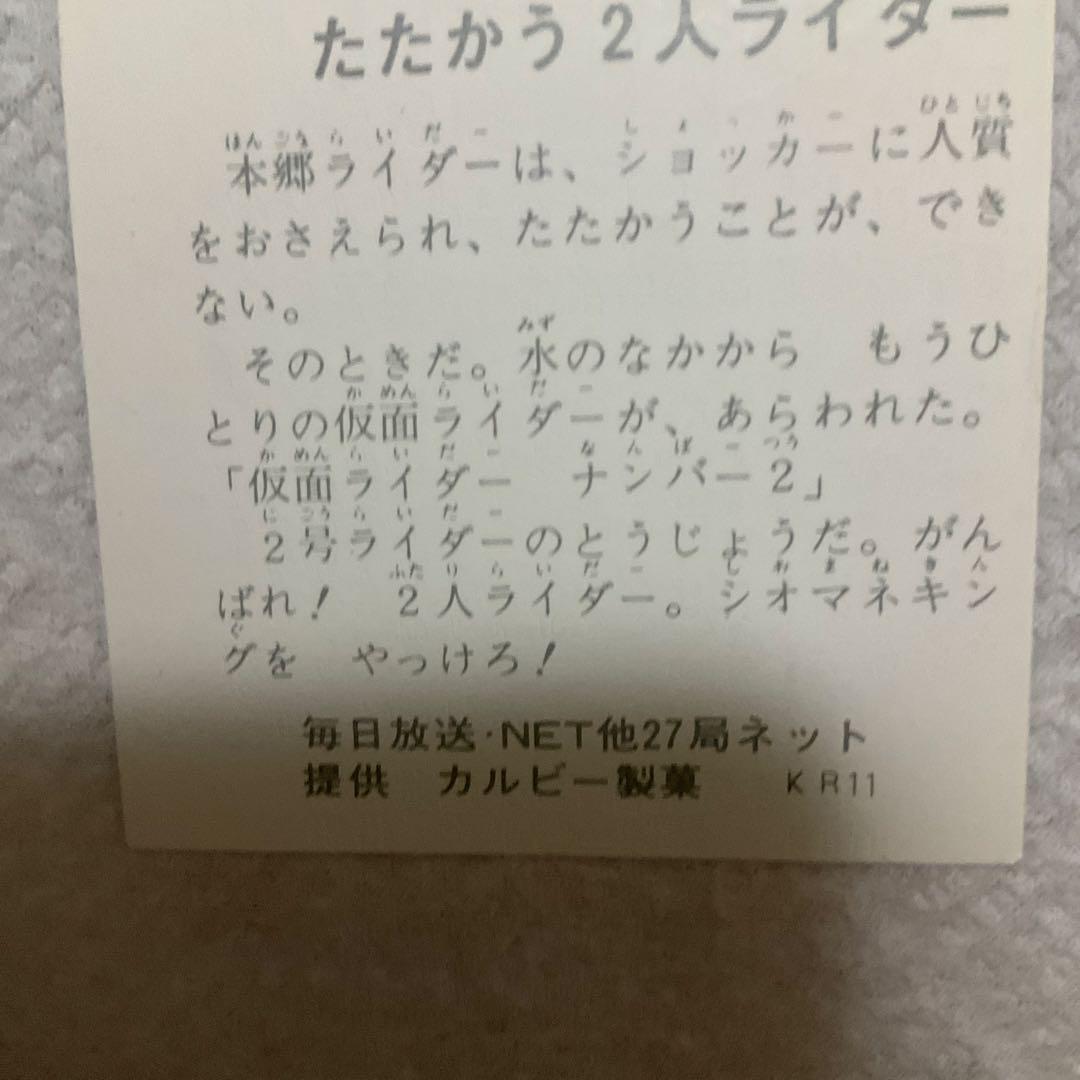 たたかう2人ライダー
本郷ライダーは、ショッカーに人質
をおさえられ、たたかうことが、でき
ない。
そのときだ。水のなかから　もうひ
とりの仮面ライダーが、あらわれた。
「仮面ライダー　ナンバー2」
2号ライダーのとうじょうだ。がん
ばれ！　2人ライダー。シオマネキン
グを　やっけろ！
毎日放送・NET他27局ネット
提供　カルビー製菓　KR11